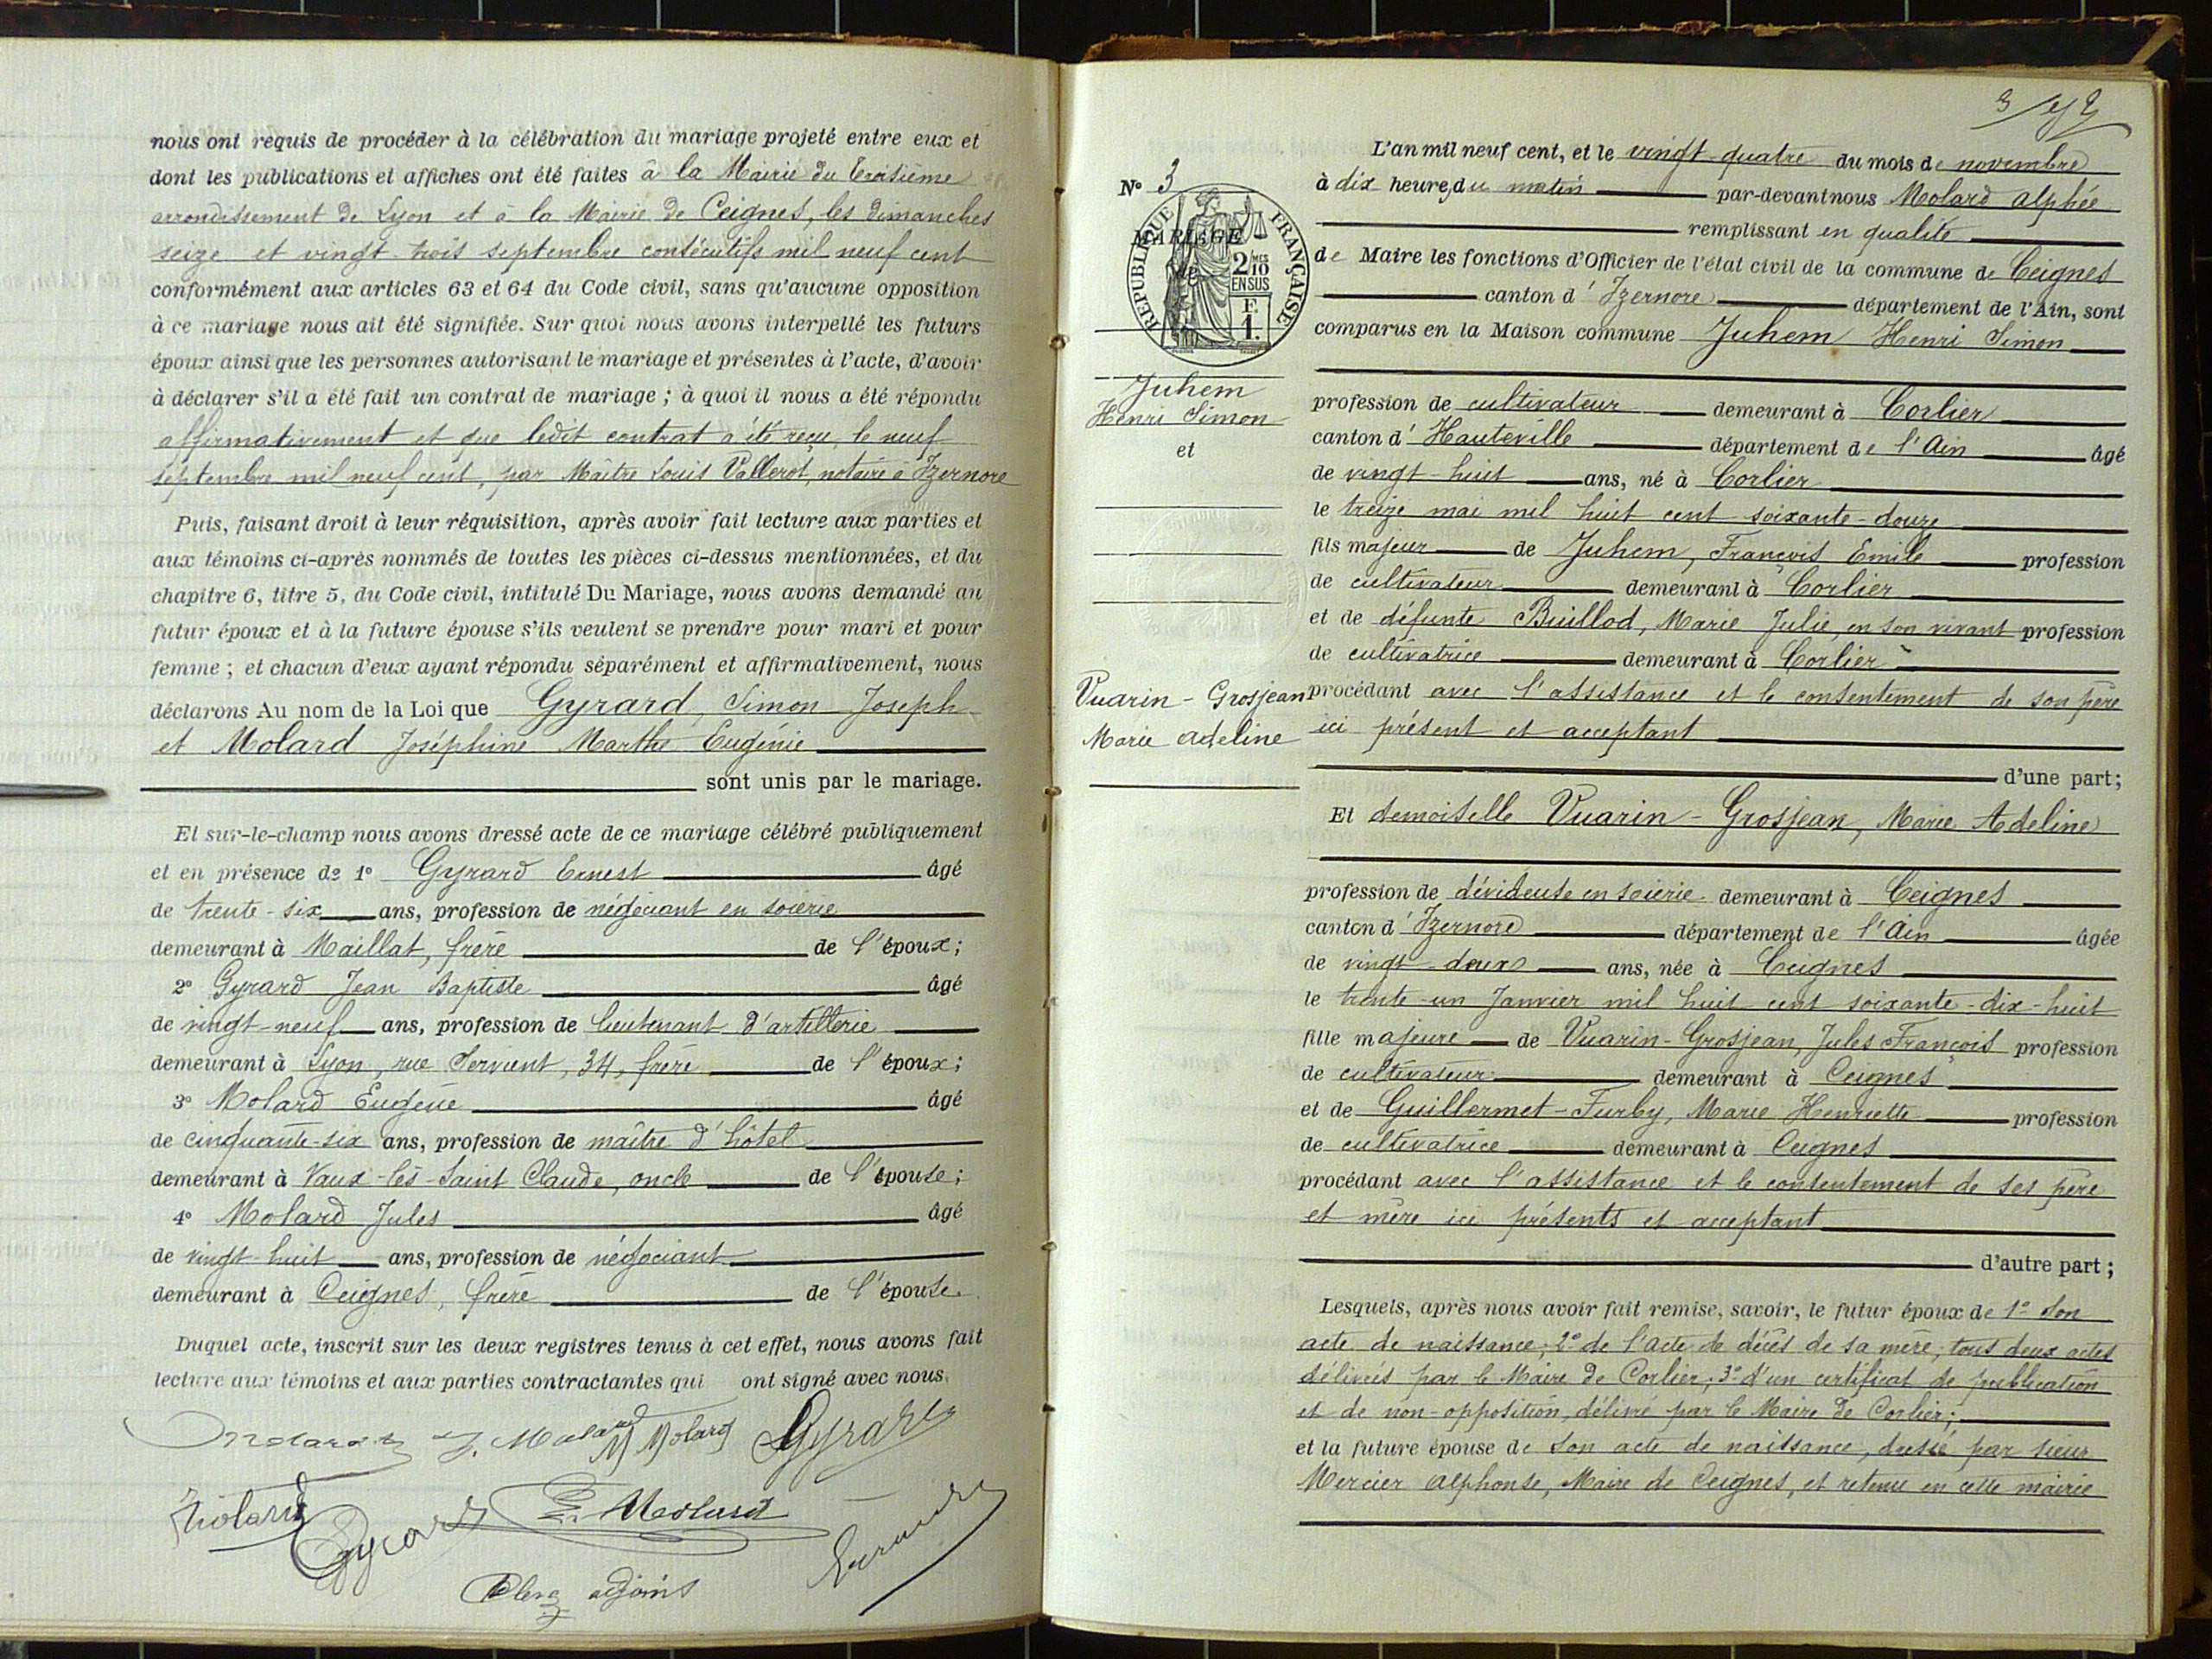 nous ont requis de procéder à la célébration du mariage projeté entre eux et
dont les publications et affiches ont été faites à la Mairie du troisième
arrondissement de Lyon et à la Mairie de Ceignes, les dimanches
seize et vingt-trois septembre consécutifs mil neuf cent
conformément aux articles 63 et 64 du Code civil, sans qu'aucune opposition
à ce mariage nous ait été signifiée. Sur quoi nous avons interpellé les futurs
époux ainsi que les personnes autorisant le mariage et présentes à l'acte, d'avoir
à déclarer s'il a été fait un contrat de mariage ; à quoi il nous a été répondu
affirmativement et que ledit contrat a été reçu, le neuf
septembre mil neuf cent, par Maître Louis Vallerot, notaire à Izernore
Puis, faisant droit à leur réquisition, après avoir fait lecture aux parties et
aux témoins ci-après nommés de toutes les pièces ci-dessus mentionnées, et du
chapitre 6, titre 5, du Code civil, intitulé Du Mariage, nous avons demandé au
futur époux et à la future épouse s'ils veulent se prendre pour mari et pour
femme ; et chacun d'eux ayant répondu séparément et affirmativement, nous
déclarons Au nom de la Loi que Gyrard, Simon Joseph
et Molard Joséphine Marthe Eugénie
sont unis par le mariage.
Et sur-le-champ nous avons dressé acte de ce mariage célébré publiquement
et en présence de 1° Gyrard Ernest âgé
de trente-six ans, profession de négociant en soierie
demeurant à Maillat, frère de l'époux;
2° Gyrard Jean Baptiste âgé
de vingt-neuf ans, profession de lieutenant d'artillerie
demeurant à Lyon, rue Servient, 34, frère de l'époux;
3° Molard Eugène âgé
de cinquante-six ans, profession de maître d'hôtel
demeurant à Vaux-lès-Saint Claude, oncle de l'épouse;
4° Molard Jules âgé
de vingt-huit ans, profession de négociant
demeurant à Ceignes, frère de l'épouse.
Duquel acte, inscrit sur les deux registres tenus à cet effet, nous avons fait
lecture aux témoins et aux parties contractantes qui ont signé avec nous.
J. Molard M Molard Gyrard
Molard Gyrard E. Molard
Clerc adjoint
3
N° 3
MARIAGE
de
RÉPUBLIQUE FRANÇAISE
2/10 MES
EN SUS
F.
1.
Juhem
Henri Simon
et
Vuarin-Grosjean
Marie Adeline
L'an mil neuf cent, et le vingt-quatre du mois de novembre
à dix heure, du matin par-devant nous Molard Alphée
remplissant en qualité
de Maire les fonctions d'Officier de l'état civil de la commune de Ceignes
canton d'Izernore département de l'Ain, sont
comparus en la Maison commune Juhem Henri Simon
profession de cultivateur demeurant à Corlier
canton d'Hauteville département de l'Ain âgé
de vingt-huit ans, né à Corlier
le treize mai mil huit cent soixante-douze
fils majeur de Juhem, François Emile profession
de cultivateur demeurant à Corlier
et de défunte Buillod, Marie Julie, en son vivant profession
de cultivatrice demeurant à Corlier
procédant avec l'assistance et le consentement de son père
ici présent et acceptant
d'une part;
Et demoiselle Vuarin-Grosjean, Marie Adeline
profession de dévideuse en soierie demeurant à Ceignes
canton d'Izernore département de l'Ain âgée
de vingt-deux ans, née à Ceignes
le trente-un Janvier mil huit cent soixante-dix-huit
fille majeure de Vuarin-Grosjean, Jules François profession
de cultivateur demeurant à Ceignes
et de Guillermet-Furby, Marie Henriette profession
de cultivatrice demeurant à Ceignes
procédant avec l'assistance et le consentement de ses père
et mère ici présents et acceptant
d'autre part ;
Lesquels, après nous avoir fait remise, savoir, le futur époux de 1° son
acte de naissance; 2° de l'acte de décès de sa mère; tous deux actes
délivrés par le Maire de Corlier; 3° d'un certificat de publication
et de non-opposition, délivré par le Maire de Corlier;
et la future épouse de son acte de naissance, dressé par sieur
Mercier Alphonse, Maire de Ceignes, et retenu en cette mairie